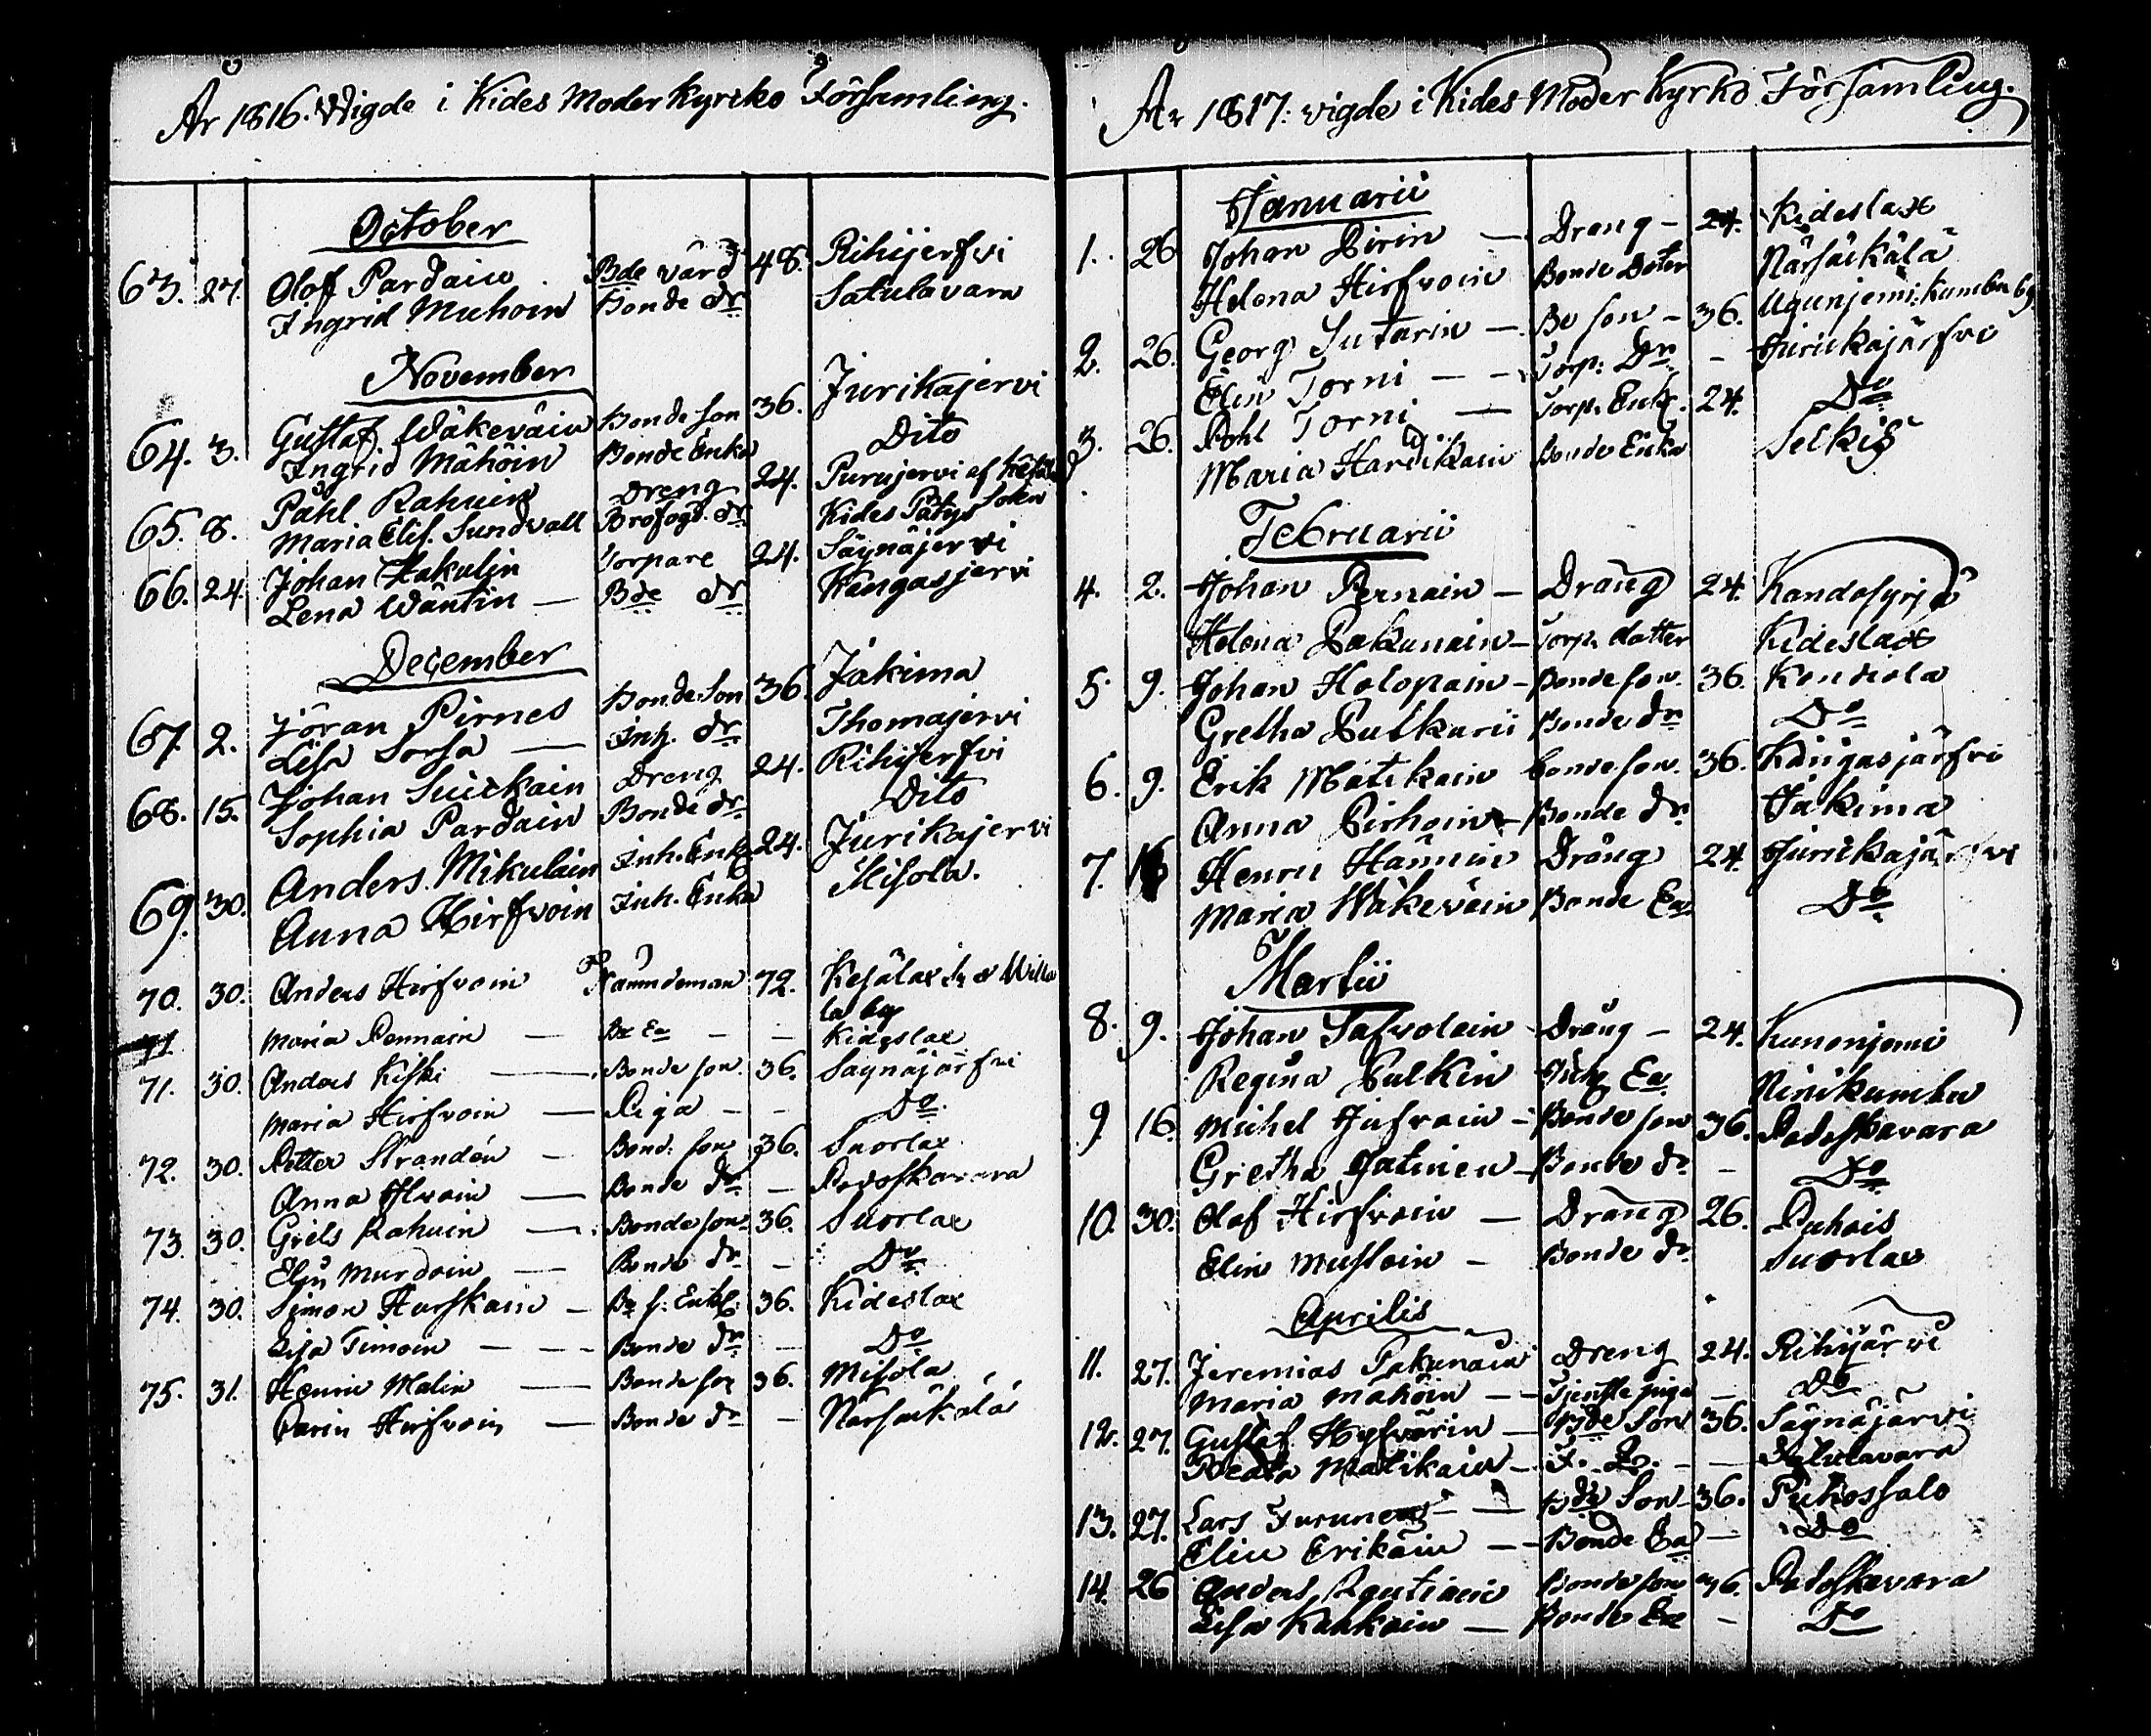 År 1816. Wigde i Kides Moder kyrko Församling.
October
63. 27. Olof Pardain Bde värd 48. Rihijerfvi
Ingrid Muhoin Bonde dr Satulavara
November
64. 3. Gustaf Wäkeväin Bonde Son 36. Jurikajervi
Ingrid Mähöin Bonde Enka Dito
65. 8. Påhl Rahuin Dreng 24. Purujervi af
Maria Elis. Sundvall Brofogd. dr Kides Socken
66. 24. Johan Hakulin Torpare 24. Säynäjervi
Lena Wäntin — Bde dr Kangasjervi
December
67. 2. Jöran Pirnes Bonde Son 36. Jakima
Lisa Sorsa — Inh. dr Thomajervi
68. 15. Johan Suikain Dreng 24. Rihijerfvi
Sophia Pardain Bonde dr Dito
69. 30. Anders Mikulain Inh. Enkl 24. Jurikajervi
Anna Hirfvoin Inh. Enka Misola.
70. 30. Anders Hirfvoin Nämndeman 72. Kesälax
la by
71 Maria Pennain — Be Ea — — Kideslax
71. 30. Anders Kiski — Bonde son. 36. Säynäjärfvi
Maria Hirfvoin — Piga — — Do.
72. 30. Petter Strandén — Bond. son 36. Suorlax
Anna — Bonde dr — Potoskavara
73. 30. Griels Rahuin — Bonde son 36. Suorlax
Murdoin — Bonde dr — Do
74. 30. Simon Hurskain — Be s. Enkl. 36. Kideslax
Lisa Timoin — — Bonde dr — Do
75. 31. Henric Malin — Bonde son 36. Misola
Carin Hirfvoin — Bonde dr — Närsäkälä
År 1817: vigde i Kides Moder Kyrko Församling.
Januarii
1. 26 Johan Pirin — Dräng — 24. Kideslax
Helena Hirfvoin Bonde Doter Närsäkälä
2. 26. Georg Sutarin — Be son — 36.
Elin Torni — — Torp: Dr — Jurikajärfvi
3. 26. Pohl Torni — Torp. Enkl. 24. Do
Maria Hardikain Bonde Enka Selkis
Februarii
4. 2. Johan Pernain — Dräng 24.
Helena Pakunain — Torp. dotter Kideslax
5. 9. Johan Holopain — Bonde son. 36. Kendiola
Gretha Pulkarii Bonde dr Do
6. 9. Erik Matikain Bonde son. 36. Kangasjärfvi
Anna Pirhoin — Bonde dr Jakima
7. 16 Henric Hännin Dräng 24. Jurikajärfvi
Maria Wäkeväin Bonde Ea Do
Martii
8. 9. Johan Tafvolain Dräng — 24. Kunonjemi
Regina Pulkin Inh Ea Ninikumbu
9. 16. Michel — Bonde son 36. Potoskavara
Gretha — Bonde dr — Do
10. 30. Olof Hirfvoin — Dräng 26. Puhois
Elin Mustoin — Bonde dr Suorlax
Aprilis
11. 27. Jeremias Pakunain Dreng 24. Rihijärvi
Maria Mähöin — — Tjenste piga — Do
12. 27. Gustaf Hyfvärin — Bde Son 36. Säynäjärvi
Beata Matikain — — — Satulavara
13. 27. Lars Turunen — — Bde Son 36. Puhossalo
Elin Erikäin — — Bonde Ea — Do
14. 26 Anders Rautiain Bonde son 36. Potoskavara
Lisa Kaukoin — Bonde Ea — Do